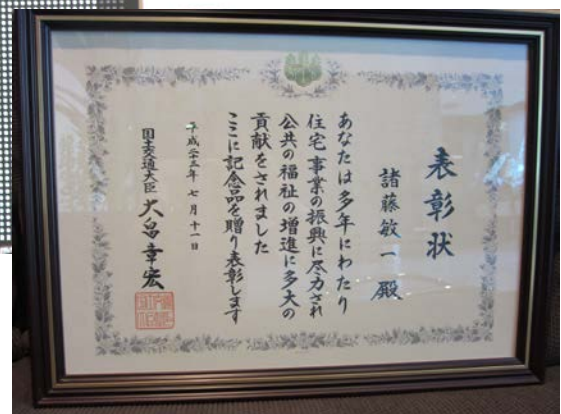 表彰状
諸藤敏一殿
あなたは多年にわたり
住宅事業の振興に尽力され
公共の福祉の増進に多大の
貢献をされました
ここに記念品を贈り表彰します
平成二十三年七月十一日
国土交通大臣 大畠章宏